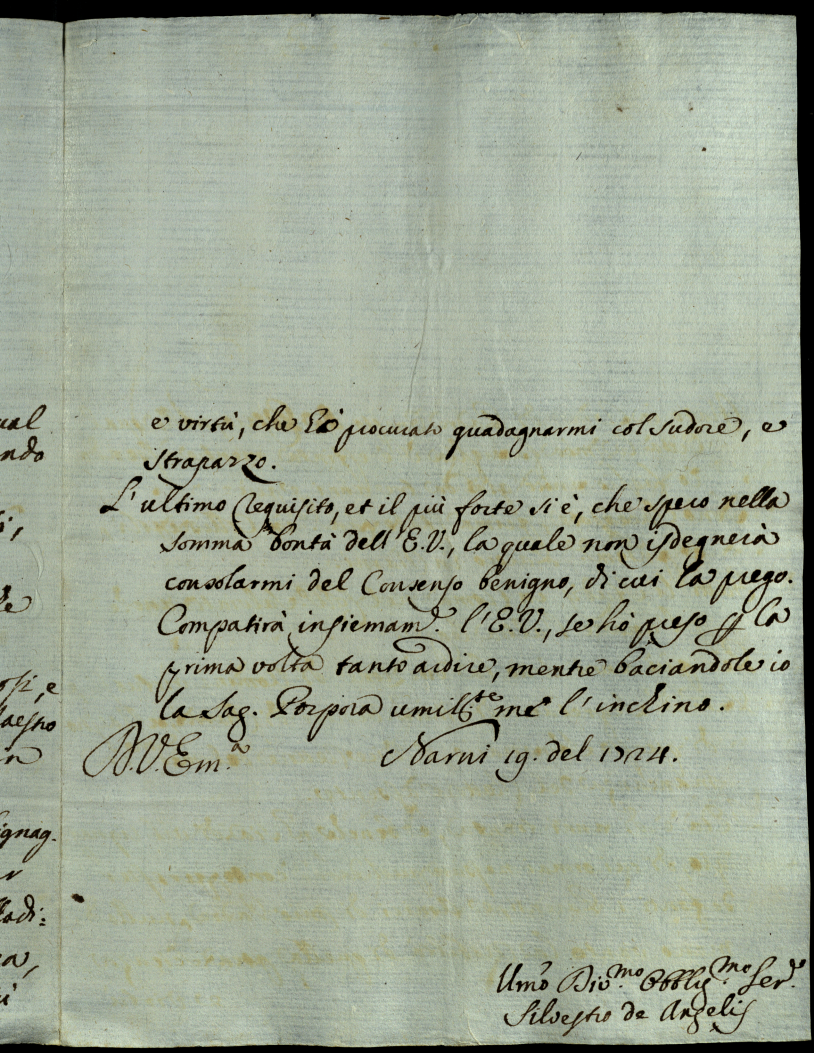 ual
ndo
i,
le
osi, e
Maestro
n
ignag.
r
Radi:
ra,
ii
e virtù, che hò procurato guadagnarmi col sudore, e
strapazzo.
L'ultimo requisito, et il più forte si è, che spero nella
somma bontà dell'E.V., la quale non isdegnerà
consolarmi del Consenso benigno, di cui la prego.
Compatirà insiemam.e l'E.V., se hò preso p la
prima volta tanto ardire, mentre baciandole io
la Sag. Porpora umiliss.te me l'inchino.
D.V.Em.a Narni 19. del 1724.
Umo Div.mo Obblig.mo Ser.e
Silvestro de Angelis